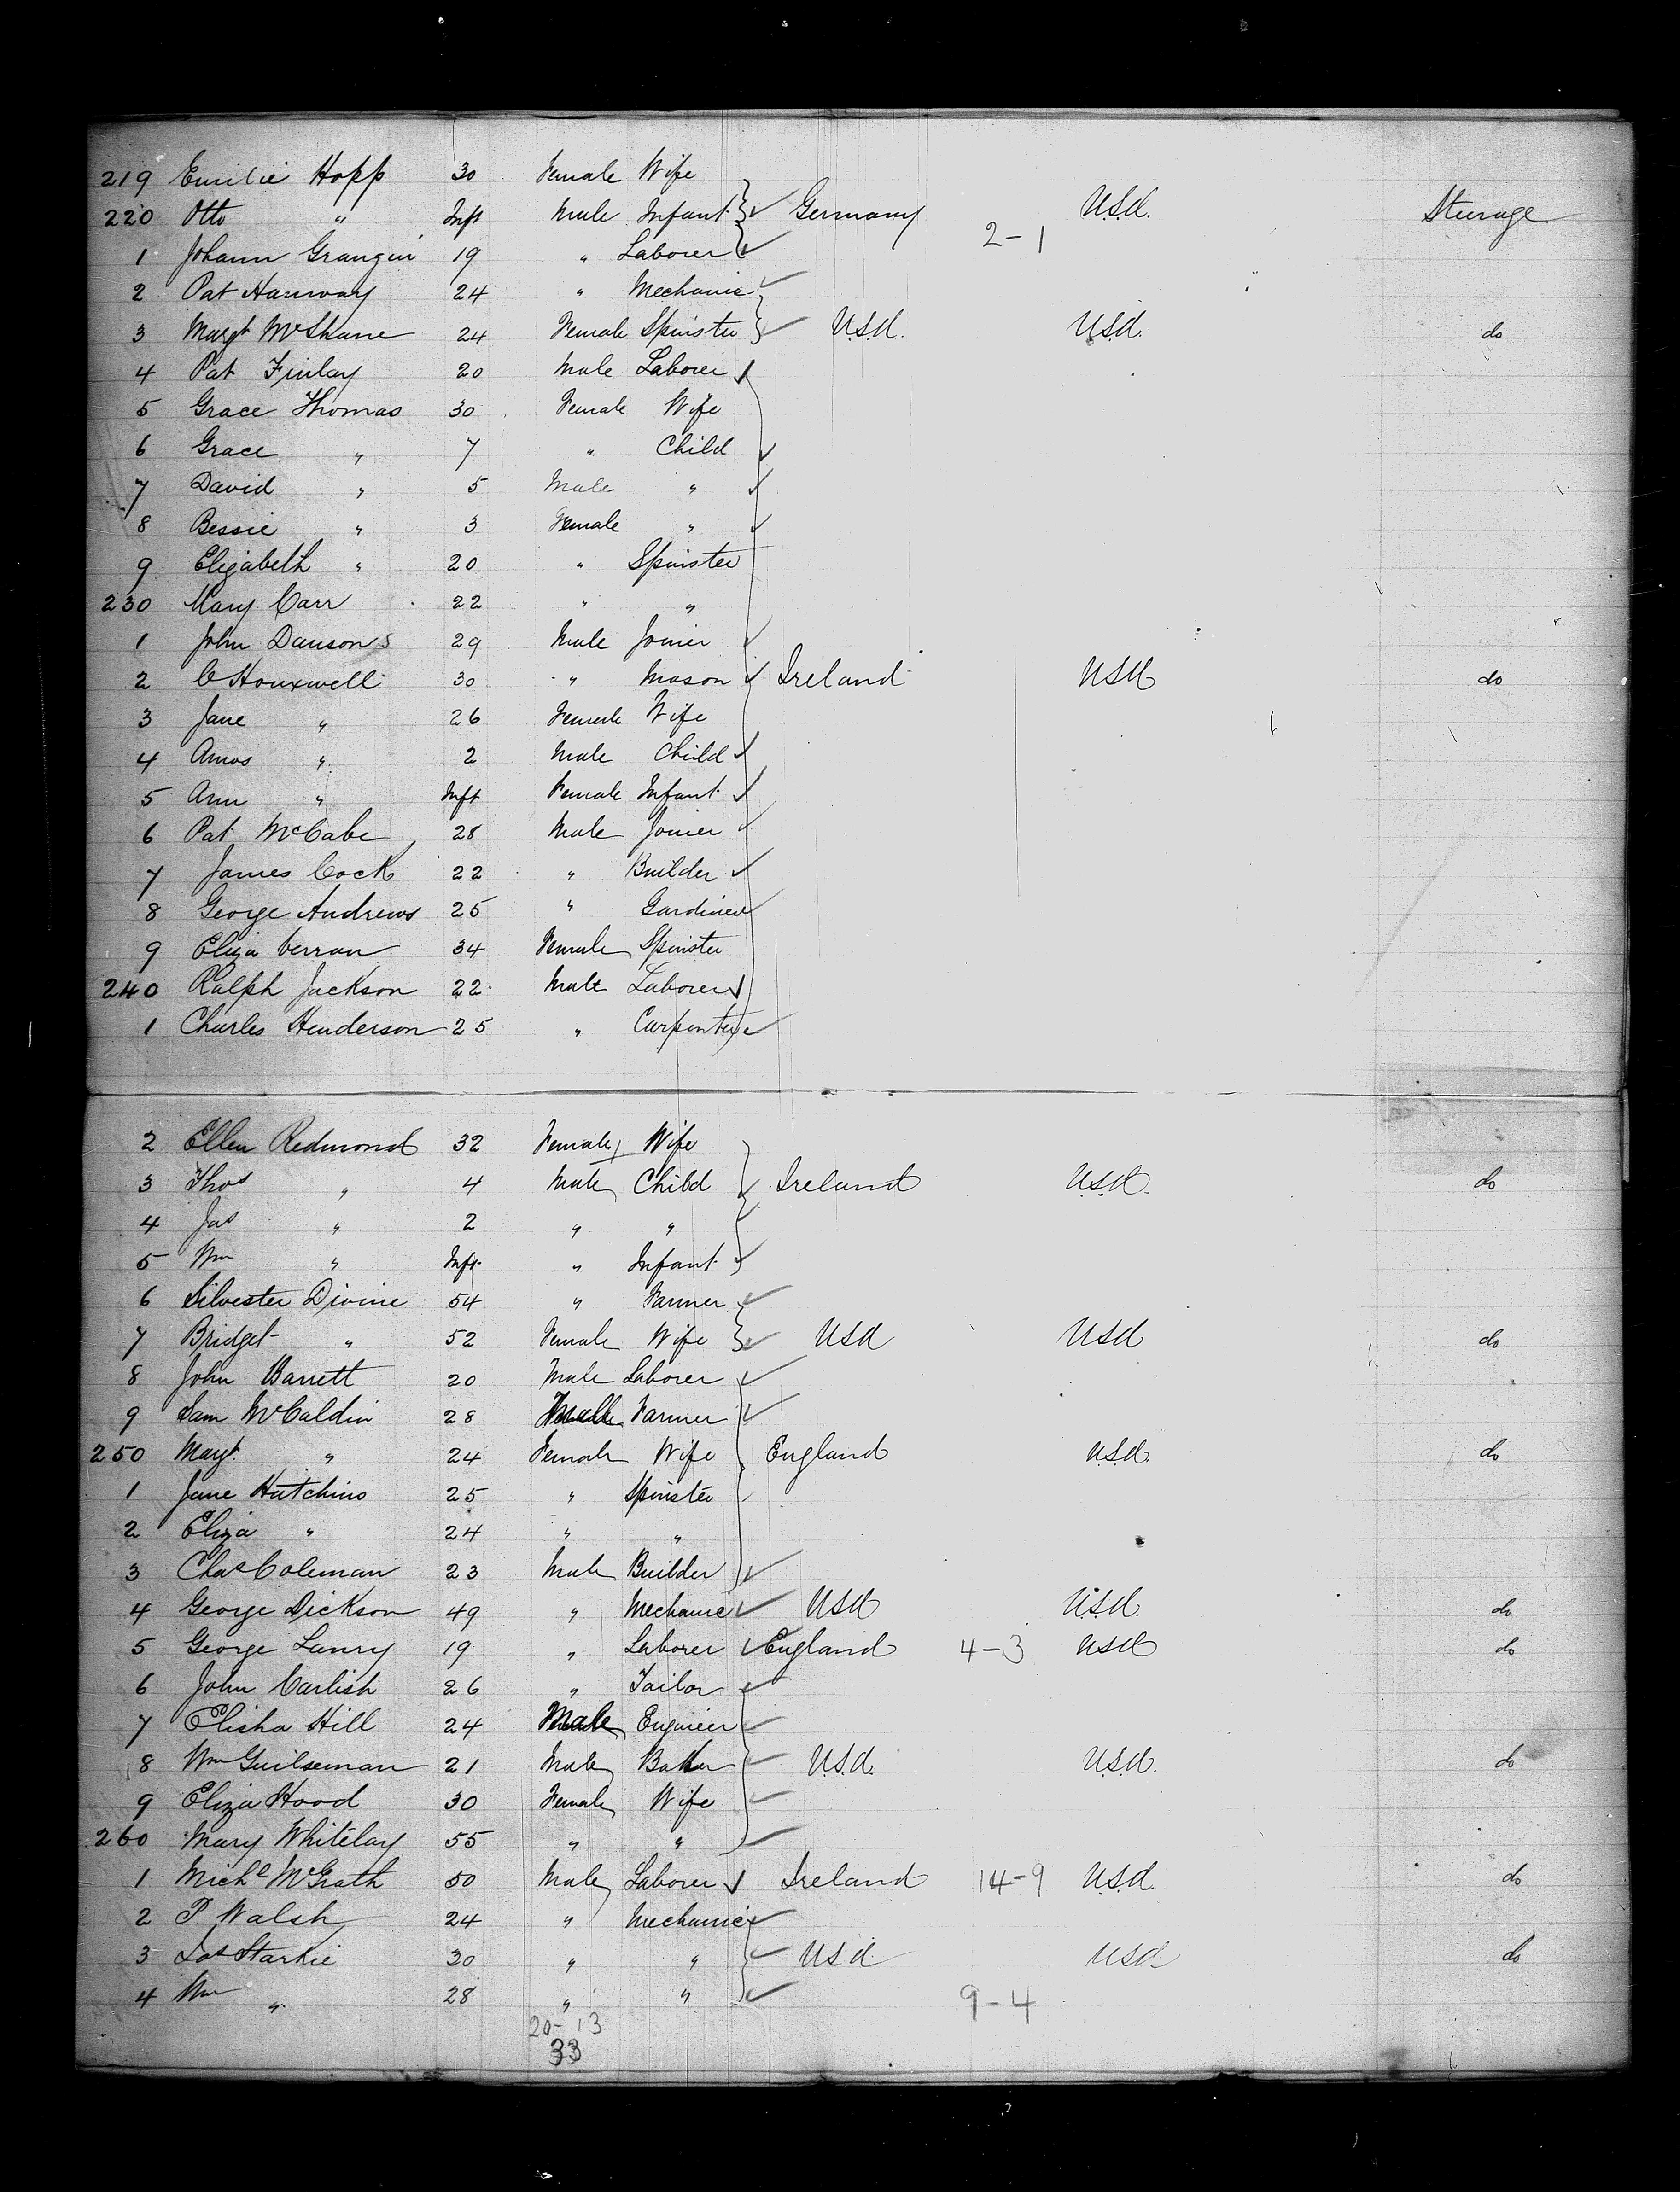 219 Emilie Hopp 30 Female Wife
220 Otto " Inft Male Infant Germany U.S.A. Steerage
2-1
1 Johann 19 " Laborer
2 Pat Hanway 24 " Mechanic
3 Margt McShane 24 Female Spinster U.S.A. U.S.A. do
4 Pat Finlay 20 Male Laborer
5 Grace Thomas 30 Female Wife
6 Grace " 7 " Child
7 David " 5 Male "
8 Bessie " 3 Female "
9 Elizabeth " 20 " Spinster
230 Mary Carr 22 " "
1 John Dawson 29 Male Joiner
2 C Houxwell 30 " Mason Ireland USA do
3 Jane " 26 Female Wife
4 Amos " 2 Male Child
5 Ann " Inft Female Infant
6 Pat McCabe 28 Male Joiner
7 James Cock 22 " Builder
8 George Andrews 25 " Gardiner
9 Eliza Verran 34 Female Spinster
240 Ralph Jackson 22 Male Laborer
1 Charles Henderson 25 " Carpenter
2 Ellen Redmond 32 Female Wife
3 Thos " 4 Male Child Ireland U.S.A. do
4 Jas " 2 " "
5 Wm " Inft " Infant
6 Silvester Divine 54 " Farmer
7 Bridget " 52 Female Wife USA USA do
8 John Barrett 20 Male Laborer
9 Sam McCaldin 28 Male Farmer
250 Margt " 24 Female Wife England U.S.A. do
1 Jane Hutchins 25 " Spinster
2 Eliza " 24 " "
3 Chas Coleman 23 Male Builder
4 George Dickson 49 " Mechanic USA U.S.A. do
5 George Lanry 19 " Laborer England 4-3 USA do
6 John Carlish 26 " Tailor
7 Elisha Hill 24 Male Engineer
8 Wm Guilseman 21 Male Baker U.S.A. U.S.A. do
9 Eliza Hood 30 Female Wife
260 Mary Whitelay 55 " "
1 Michl McGrath 50 Male Laborer Ireland 14-9 U.S.A. do
2 P Walsh 24 " Mechanic
3 Jos Starkie 30 " " USA USA do
4 Wm " 28 " " 9-4
20-13
33